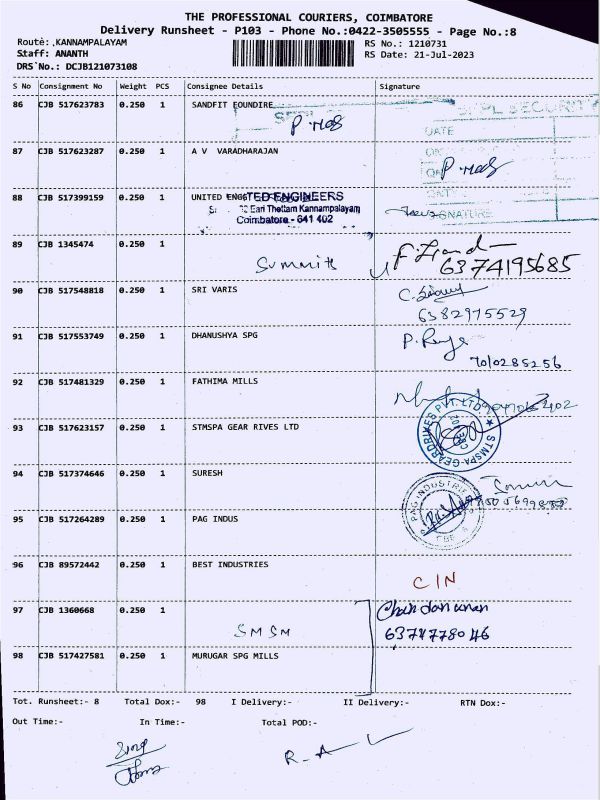 THE PROFESSIONAL COURIERS, COIMBATORE
Delivery Runsheet - P103 - Phone No.:0422-3505555 - Page No.:8
Route: KANNAMPALAYAM RS No.: 1210731
Staff: ANANTH RS Date: 21-Jul-2023
DRS No.: DCJB121073108
S No Consignment No Weight PCS Consignee Details Signature
86 CJB 517623783 0.250 1 SANDFIT FOUNDIRE
SECURITY
DATE
87 CJB 517623287 0.250 1 A V VARADHARAJAN
88 CJB 517399159 0.250 1 UNITED
TED ENGINEERS
Eari Thottam Kannampalayam
Coimbatore - 641 402
SIGNATURE
89 CJB 1345474 0.250 1
Summits
6374195685
90 CJB 517548818 0.250 1 SRI VARIS
6382975529
91 CJB 517553749 0.250 1 DHANUSHYA SPG
7010285256
92 CJB 517481329 0.250 1 FATHIMA MILLS
93 CJB 517623157 0.250 1 STMSPA GEAR RIVES LTD
STMSPA GEARDRIVES PVT. LTD
94 CJB 517374646 0.250 1 SURESH
PAG INDUSTRIES
95 CJB 517264289 0.250 1 PAG INDUS
96 CJB 89572442 0.250 1 BEST INDUSTRIES
CIN
97 CJB 1360668 0.250 1
SMSM
6374778046
98 CJB 517427581 0.250 1 MURUGAR SPG MILLS
Tot. Runsheet:- 8 Total Dox:- 98 I Delivery:- II Delivery:- RTN Dox:-
Out Time:- In Time:- Total POD:-